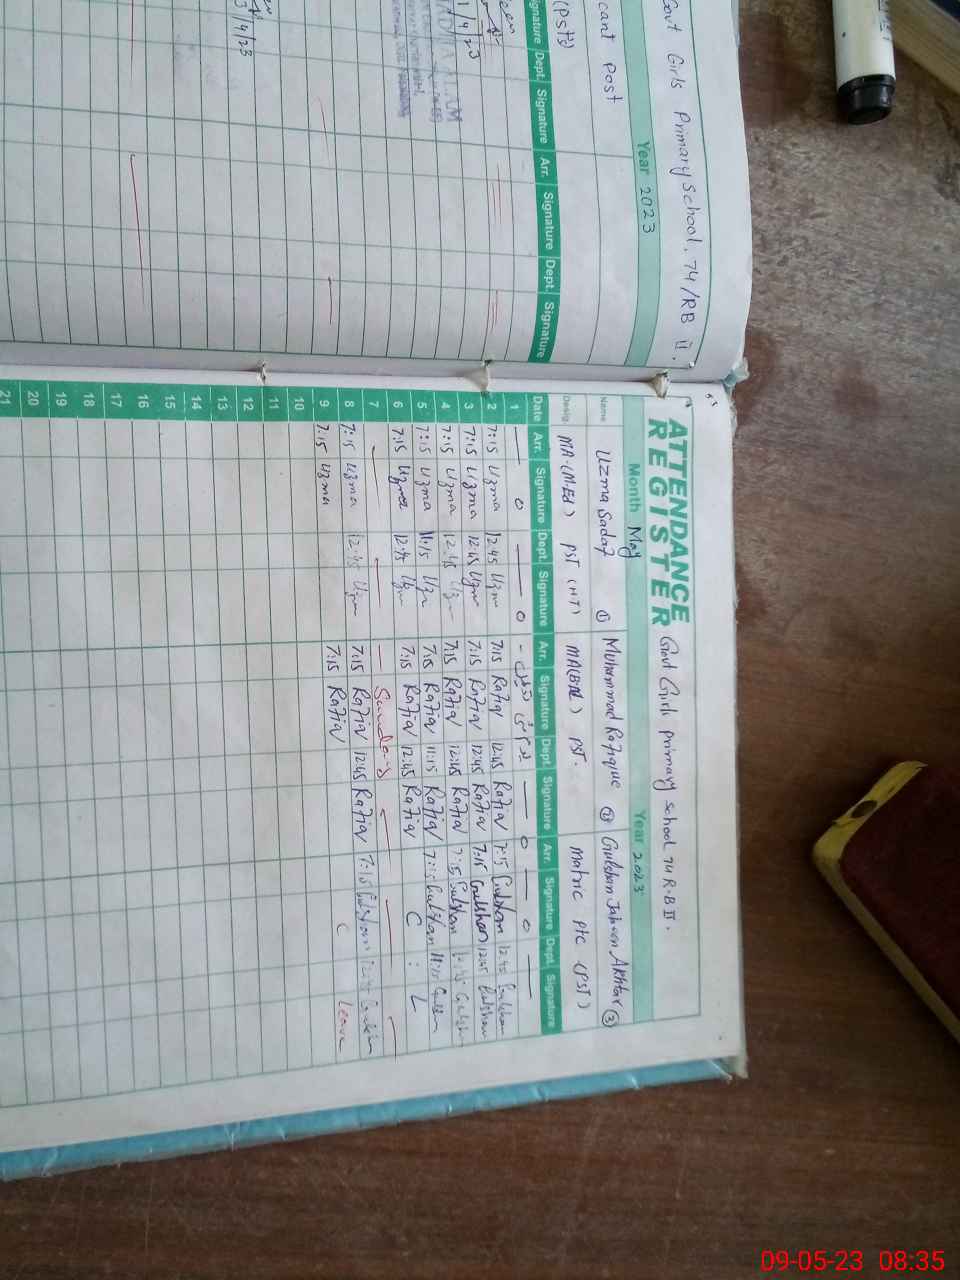 Govt Girls Primary School, 74/RB ii.
Year 2023
cant Post
(PST)
Signature Dept. Signature Arr. Signature Dept. Signature
1/4/23
3/4/23
ATTENDANCE
REGISTER
Govt Girls primary school 74 R.B II.
Month May
Year 2023
Name Uzma Sadaf ① Muhammad Rafique ② Gulshan Jahan Akhtar ③
Desig. MA-(M.Ed) PST (HT) MA(B.Ed) PST. Matric PTC (PST)
Date Arr. Signature Dept. Signature Arr. Signature Dept. Signature Arr. Signature Dept. Signature
1
2 7:15 Uzma 12:45 Uzma 7:15 Rafiq 12:45 Rafiq 7:15 Gulshan 12:45 Gulshan
3 7:15 Uzma 12:45 Uzma 7:15 Rafiq 12:45 Rafiq 7:15 Gulshan 12:45 Gulshan
4 7:15 Uzma 12:45 Uzma 7:15 Rafiq 12:45 Rafiq 7:15 Gulshan 12:45 Gulshan
5 7:15 Uzma 11:15 Uzma 7:15 Rafiq 11:15 Rafiq 7:15 Gulshan 11:15 Gulshan
6 7:15 Uzma 12:45 Uzma 7:15 Rafiq 12:45 Rafiq C : L
7 Sunday
8 7:15 Uzma 12:45 Uzma 7:15 Rafiq 12:45 Rafiq 7:15 Gulshan 12:45 Gulshan
9 7:15 Uzma 7:15 Rafiq C Leave
10
11
12
13
14
15
16
17
18
19
20
21
09-05-23 08:35